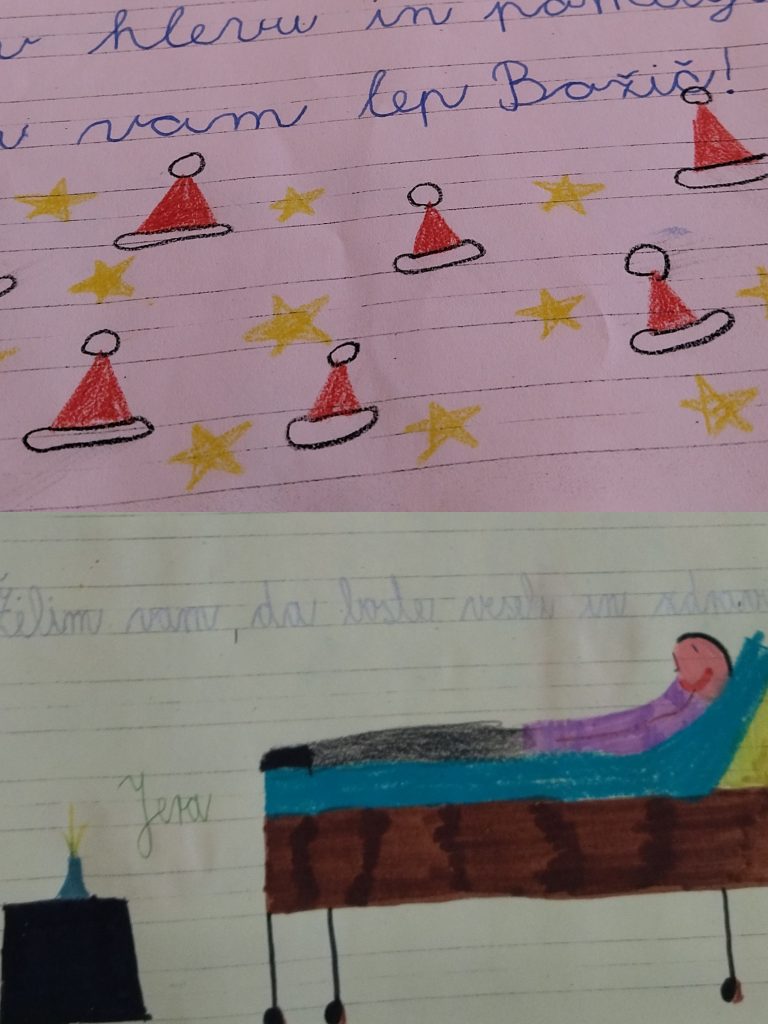 v hlevu in
vam lep Božič!
Želim vam, da boste veseli in zdrav
Jera